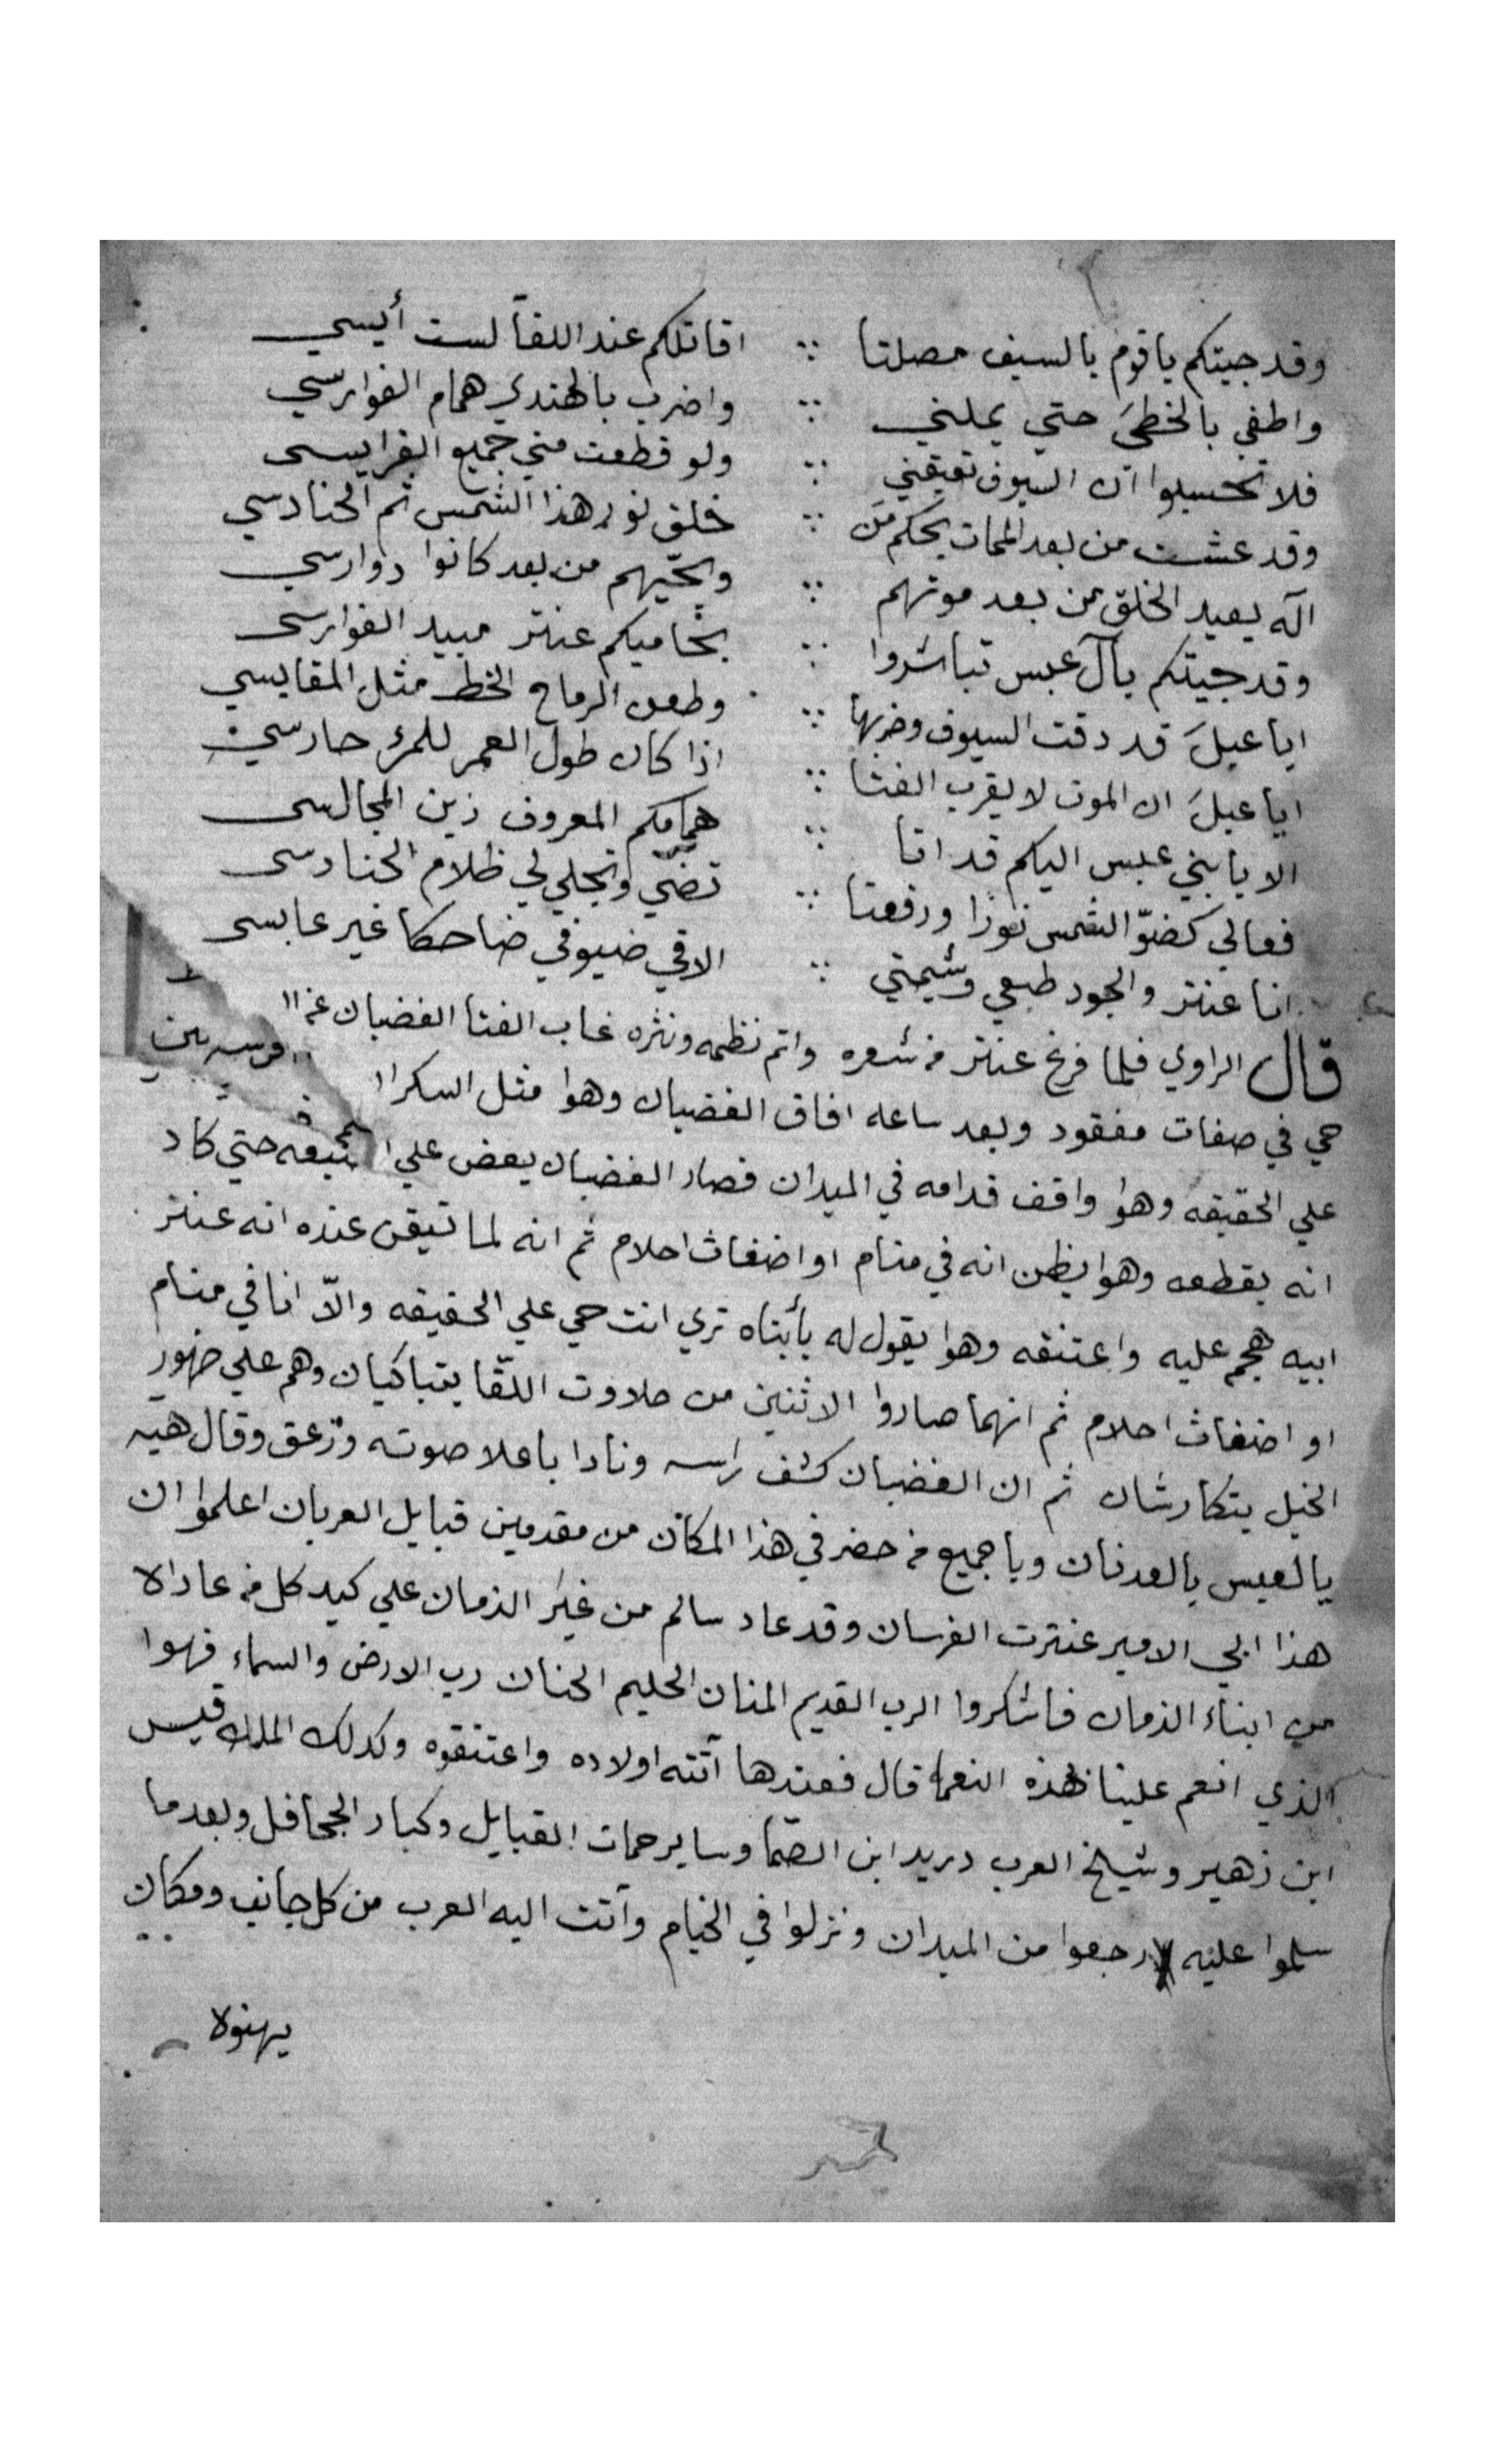 وقد جيتكم يا قوم بالسيف مصلتا ∴ اقاتلكم عند اللقآ لست أيسي
واطفي بالخطيَ حتي يملني ∴ واضرب بالهندي همام الفوارسي
فلا تحسبوا ان السيوف تعيقني ∴ ولو قطعت مني جميع الفرايسي
وقد عشت من بعد الممات بحكم من ∴ خلق نور هذا الشمس ثم الحنادسي
اله يعيد الخلق من بعد موتهم ∴ ويحييهم من بعد كانوا دوارسي
وقد جيتكم يآل عبس تباشروا ∴ بحاميكم عنتر مبيد الفوارسي
ايا عبلَ قد دقت السيوف وضربها ∴ وطعن الرماح الخط مثل المقابسي
ايا عبلَ ان الموت لا يقرب الفتا ∴ اذا كان طول العمر للمرء حارسي
الا يا بني عبس اليكم قد اتا ∴ همامكم المعروف زين المجالسي
فعالي كضوّ الشمس نورًا ورفعتا ∴ تضي وتجلي لي ظلام الحنادسي
انا عنتر والجود طبعي وشيمتي ∴ الاقي ضيوفي ضاحكا غير عابسي
قال الراوي فلما فرغ عنتر من شعره واتم نظمه ونثره غاب الفتا الغضبان عن
حي في صفات مفقود وبعد ساعه افاق الغضبان وهوا مثل السكرا
علي الحقيقه وهوا واقف قدامه في الميدان فصار الغضبان يعض علي حتي كاد
انه يقطعه وهوا يظن انه في منام او اضغاث احلام ثم انه لما تيقن عنده انه عنتر
ابيه هجم عليه واعتنقه وهوا يقول له يأبتاه تري انت حي علي الحقيقه والاّ انا في منام
او اضغاث احلام ثم انهما صاروا الاثنين من حلاوت اللقا يتباكيان وهم علي ضهور
الخيل يتكارشان ثم ان الغضبان كشف راسه ونادا باعلا صوته وزعق وقال هيه
يالعبس يالعدنان ويا جميع من حضر في هذا المكان من مقدمين قبايل العربان اعلموا ان
هذا ابي الامير عنترت الفرسان وقد عاد سالم من غيَر الزمان علي كيد كل من عاداه
من ابناء الزمان فاشكروا الرب القديم المنان الحليم الحنان رب الارض والسماء فهوا
الذي انعم علينا بهذه النعما قال فعندها آتته اولاده واعتنقوه وكدلك الملك قيس
ابن زهير وشيخ العرب دريد ابن الصمّا وساير حمات القبايل وكبار الجحافل وبعد ما
سلموا عليه رجعوا من الميدان ونزلوا في الخيام وآتت اليه العرب من كل جانب ومكان
يهنوه